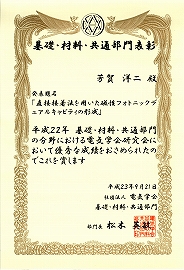 基礎・材料・共通部門表彰
芳賀 洋二 殿
発表題名
「直接接着法を用いた磁性フォトニックデ
ュアルキャビティの形成」
平成22年 基礎・材料・共通部門
の分野における電気学会研究会に
おいて優秀な成績をおさめられたの
でこれを賞します
平成23年9月21日
社団法人 電気学会
基礎・材料・共通部門
部門長 松木 英敏